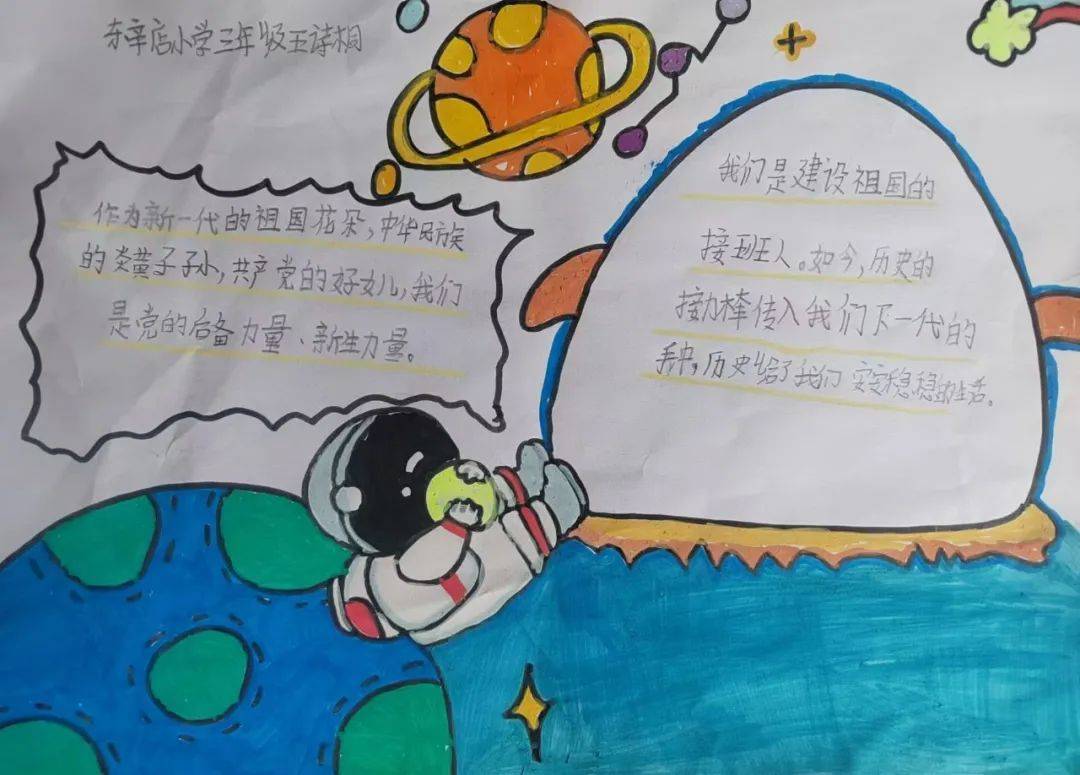 东辛店小学三年级王诗桐
作为新一代的祖国花朵,中华民族
的炎黄子孙,共产党的好女儿,我们
是党的后备力量、新生力量。
我们是建设祖国的
接班人。如今,历史的
接力棒传入我们下一代的
手中,历史给了我们 安安稳稳的生活。